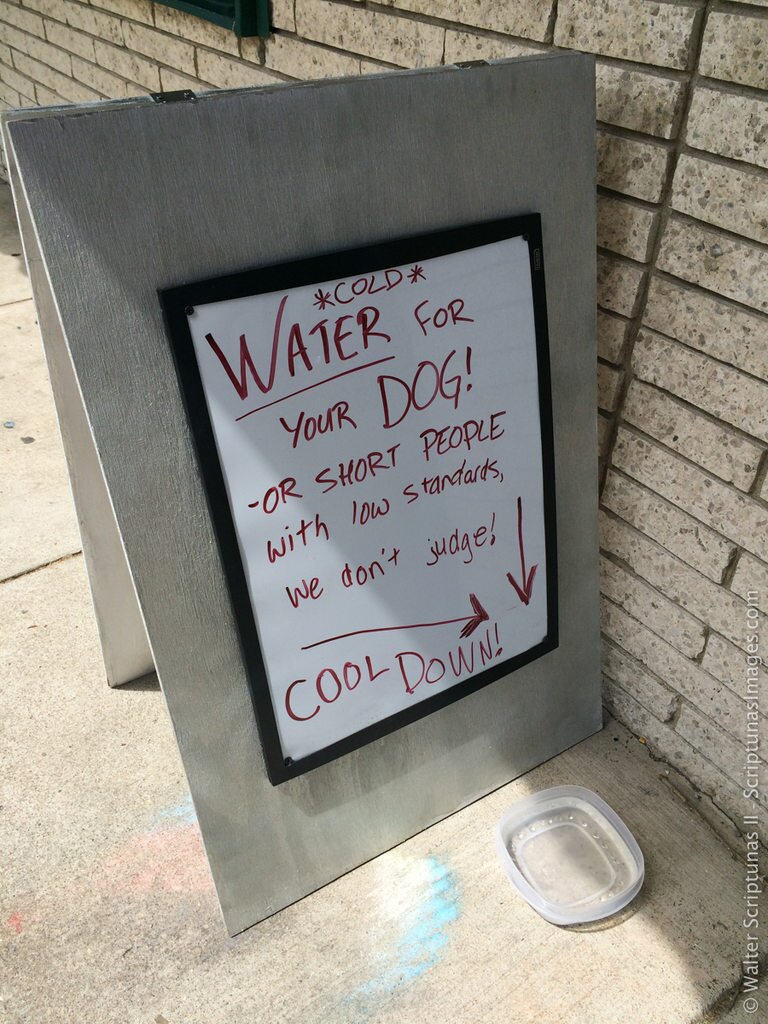 *COLD*
WATER FOR
YOUR DOG!
-OR SHORT PEOPLE
with low standards,
we don't judge!
COOL DOWN!
© Walter Scriptunas II - ScriptunasImages.com